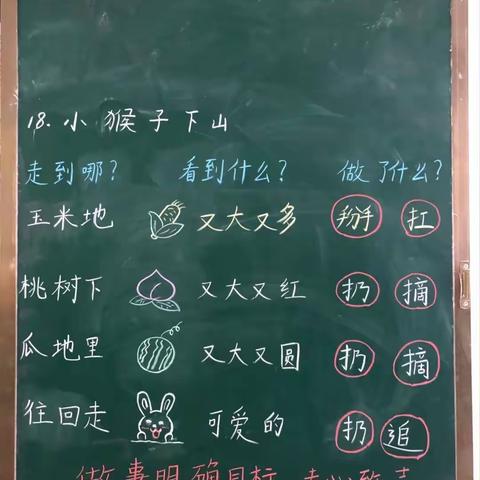 18.小猴子下山
走到哪？ 看到什么？ 做了什么？
玉米地 又大又多 掰 扛
桃树下 又大又红 扔 摘
瓜地里 又大又圆 扔 摘
往回走 可爱的 扔 追
做事明确目标